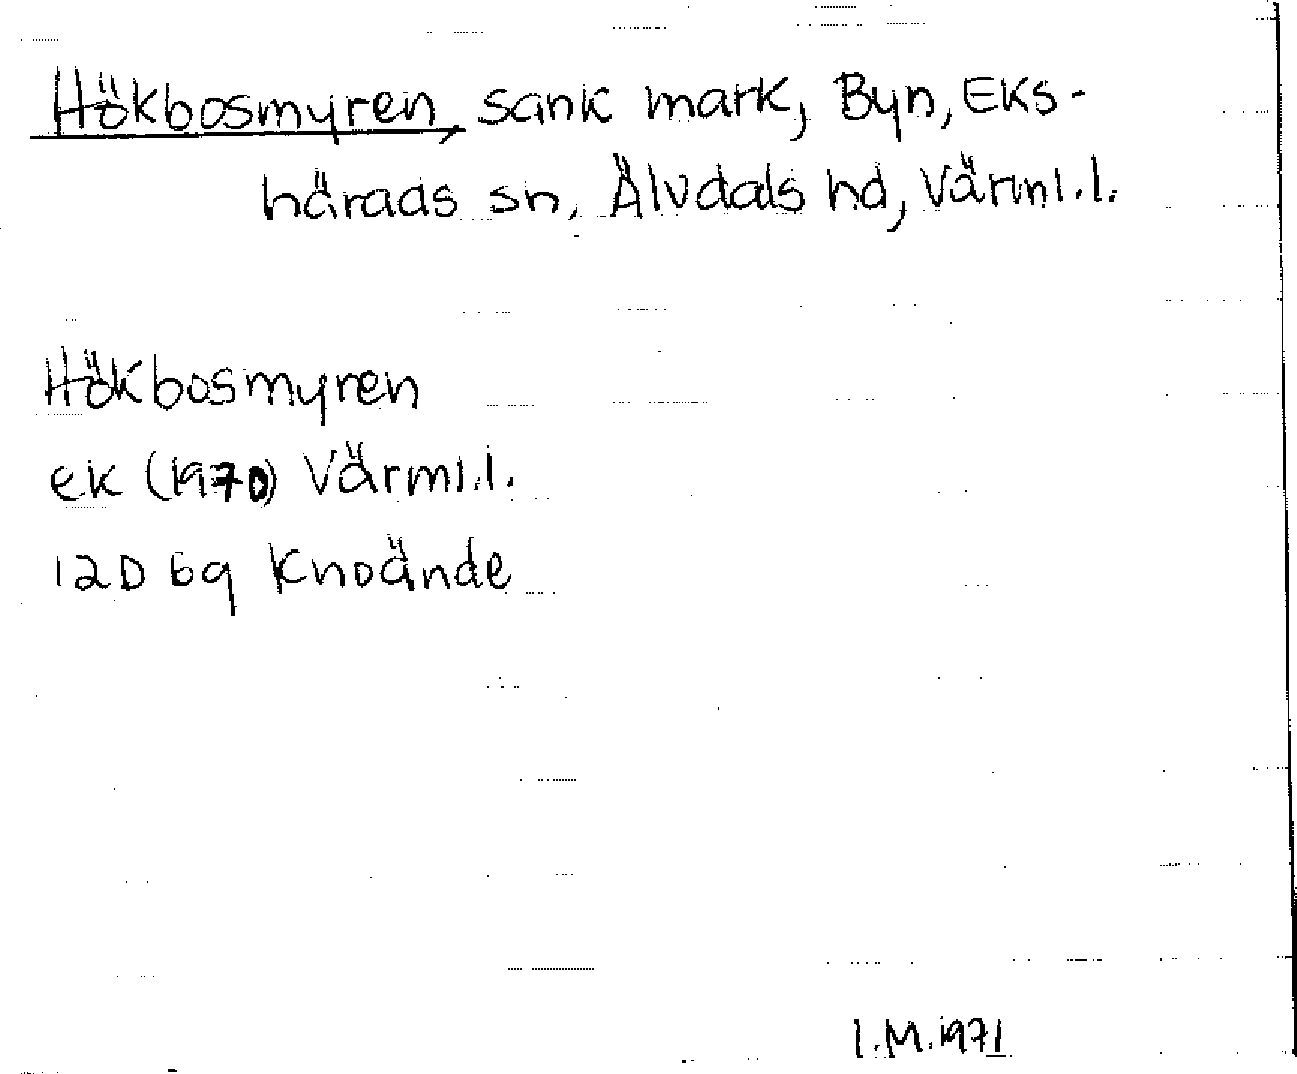 Hökbosmyren, sank mark, Byn, Eks-
härads sn, Älvdals hd, Värml.l.
Hökbosmyren
ek (1970) Värml.l.
12D 6g Knoände
I.M.1971